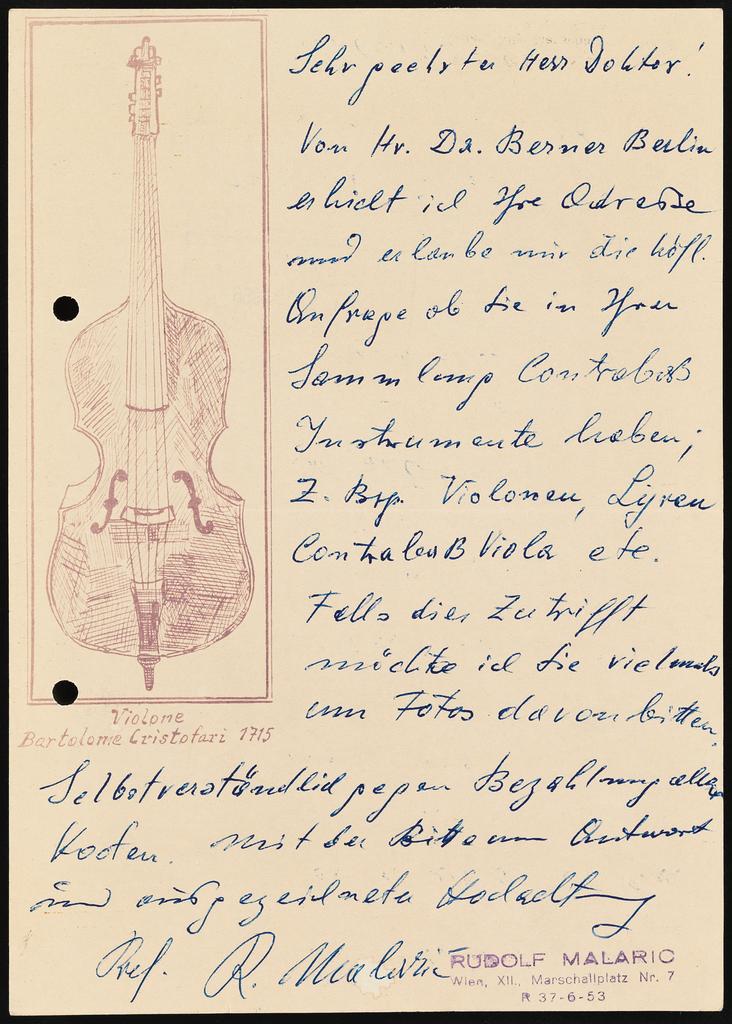 Sehr geehrter Herr Doktor!
Von Hr. Dr. Berner Berlin
erhielt ich Ihre Adresse
und erlaube mir die höfl.
Anfrage ob Sie in Ihrer
Sammlung Contrabaß
Instrumente haben;
Z. Bsp. Violonen, Lyren
Contrabaß Viola etc.
Falls dies Zutrifft
möchte ich Sie vielmals
um Fotos davon bitten.
Selbstverständlich gegen Bezahlung aller
Kosten. Mit der Bitte um Antwort
und ausgezeichneter Hochachtung
Prof. R. Malaric
Violone
Bartolome Cristofari 1715
RUDOLF MALARIC
Wien, XII., Marschallplatz Nr. 7
R 37-6-53